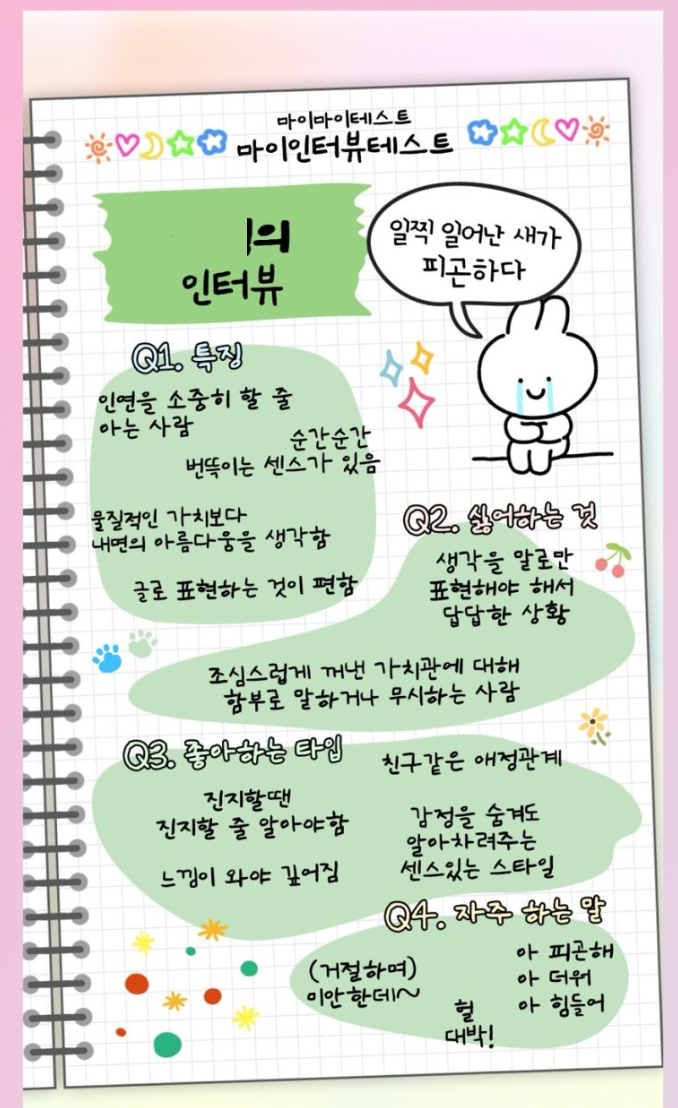 마이마이테스트
마이인터뷰테스트
의
인터뷰
일찍 일어난 새가
피곤하다
Q1. 특징
인연을 소중히 할 줄
아는 사람
순간순간
번뜩이는 센스가 있음
물질적인 가치보다
내면의 아름다움을 생각함
글로 표현하는 것이 편함
Q2. 싫어하는 것
생각을 말로만
표현해야 해서
답답한 상황
조심스럽게 꺼낸 가치관에 대해
함부로 말하거나 무시하는 사람
Q3. 좋아하는 타입
친구같은 애정관계
진지할땐
진지할 줄 알아야함
감정을 숨겨도
알아차려주는
센스있는 스타일
느낌이 와야 깊어짐
Q4. 자주 하는 말
(거절하며)
미안한데~
헐
대박!
아 피곤해
아 더워
아 힘들어